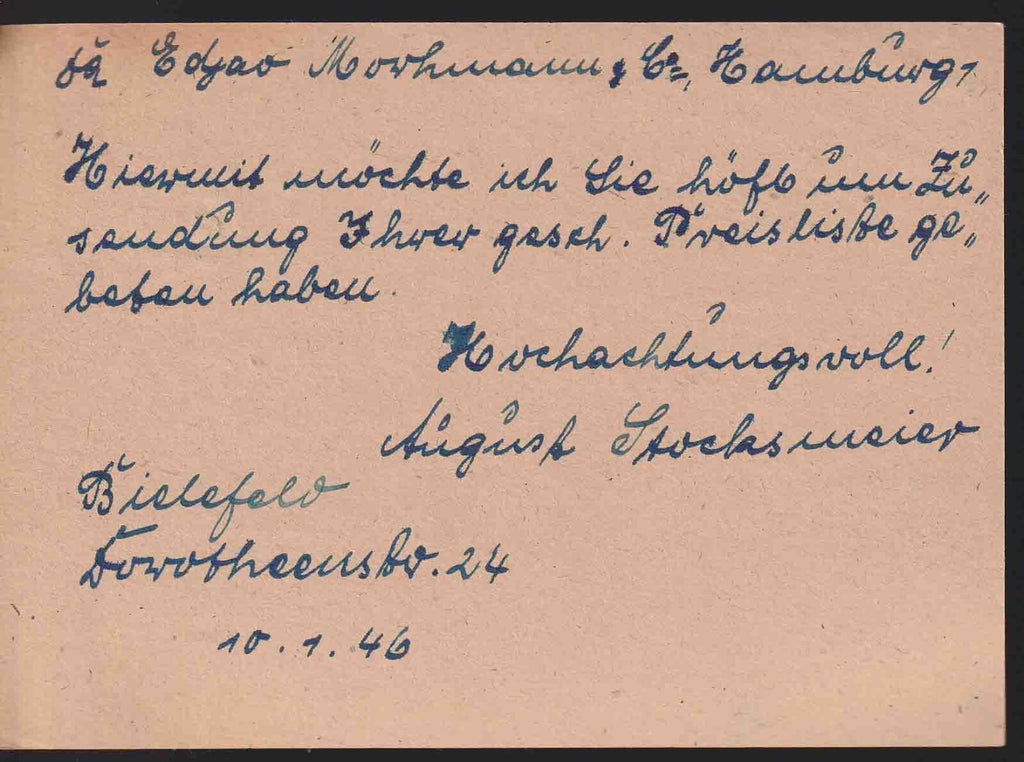 Fa Edgar Mohrmann & Co, Hamburg 1
Hiermit möchte ich Sie höfl um Zu„
sendung Ihrer gesch. Preisliste ge„
beten haben.
Hochachtungsvoll!
August Stocksmeier
Bielefeld
Dorotheenstr. 24
10. 1. 46